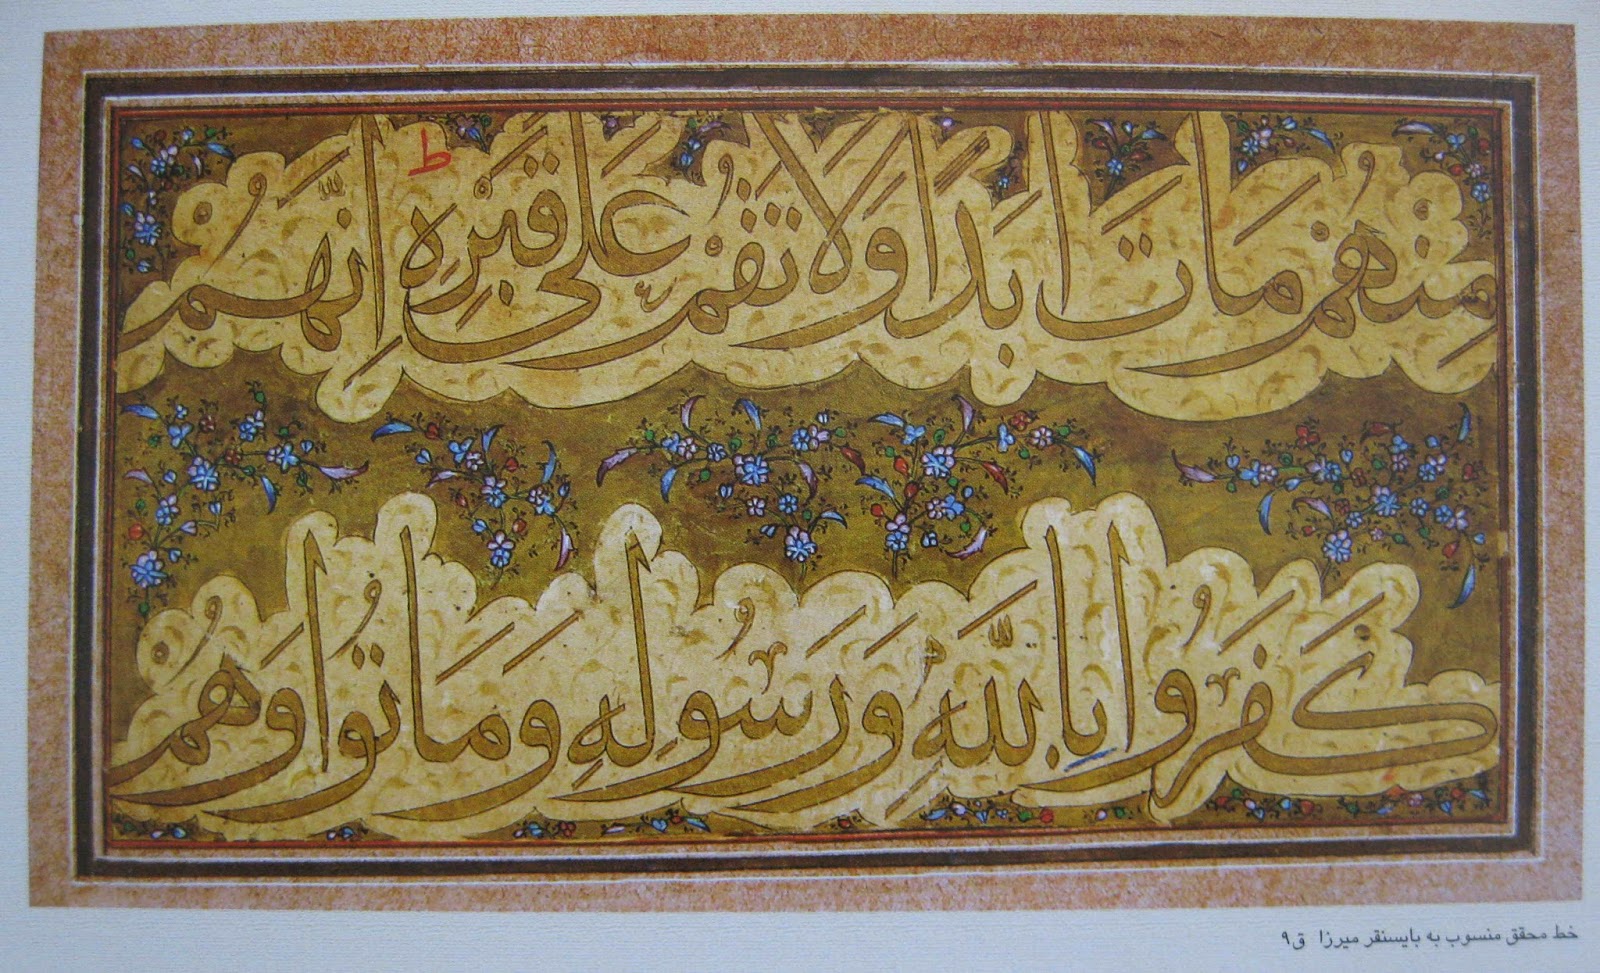 مِنْهُمْ مَاتَ اَبَدًا وَلَا تَقُمْ عَلٰى قَبْرِهِ ط اِنَّهُمْ
كَفَرُوا بِاللّٰهِ وَرَسُولِهِ وَمَاتُوا وَهُمْ
خط محقق منسوب به بایسنقر میرزا ق۹